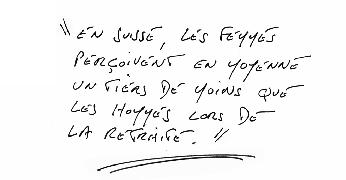 " EN SUISSE, LES FEMMES
PERÇOIVENT EN MOYENNE
UN TIERS DE MOINS QUE
LES HOMMES LORS DE
LA RETRAITE. "